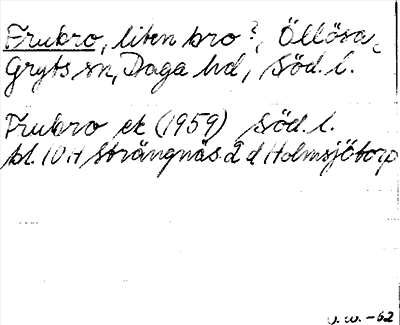 Frubro, liten bro?, Öllösa,
Gryts sn, Daga hd, Söd. l.
Frubro ek (1959) Söd. l.
bl. 10H Strängnäs 2 d Holmsjötorp
V. W. -62